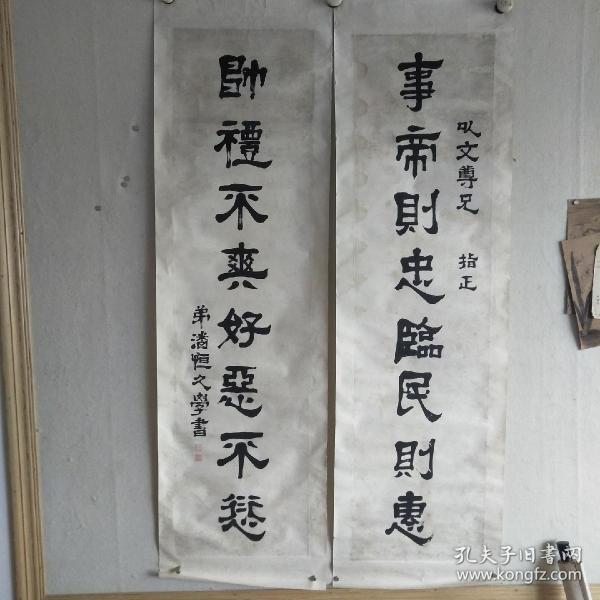 事帝則忠臨民則惠
以文尊兄 指正
帥禮不爽好惡不愆
弟潘恒久學書
孔夫子旧書网
www.kongfz.com